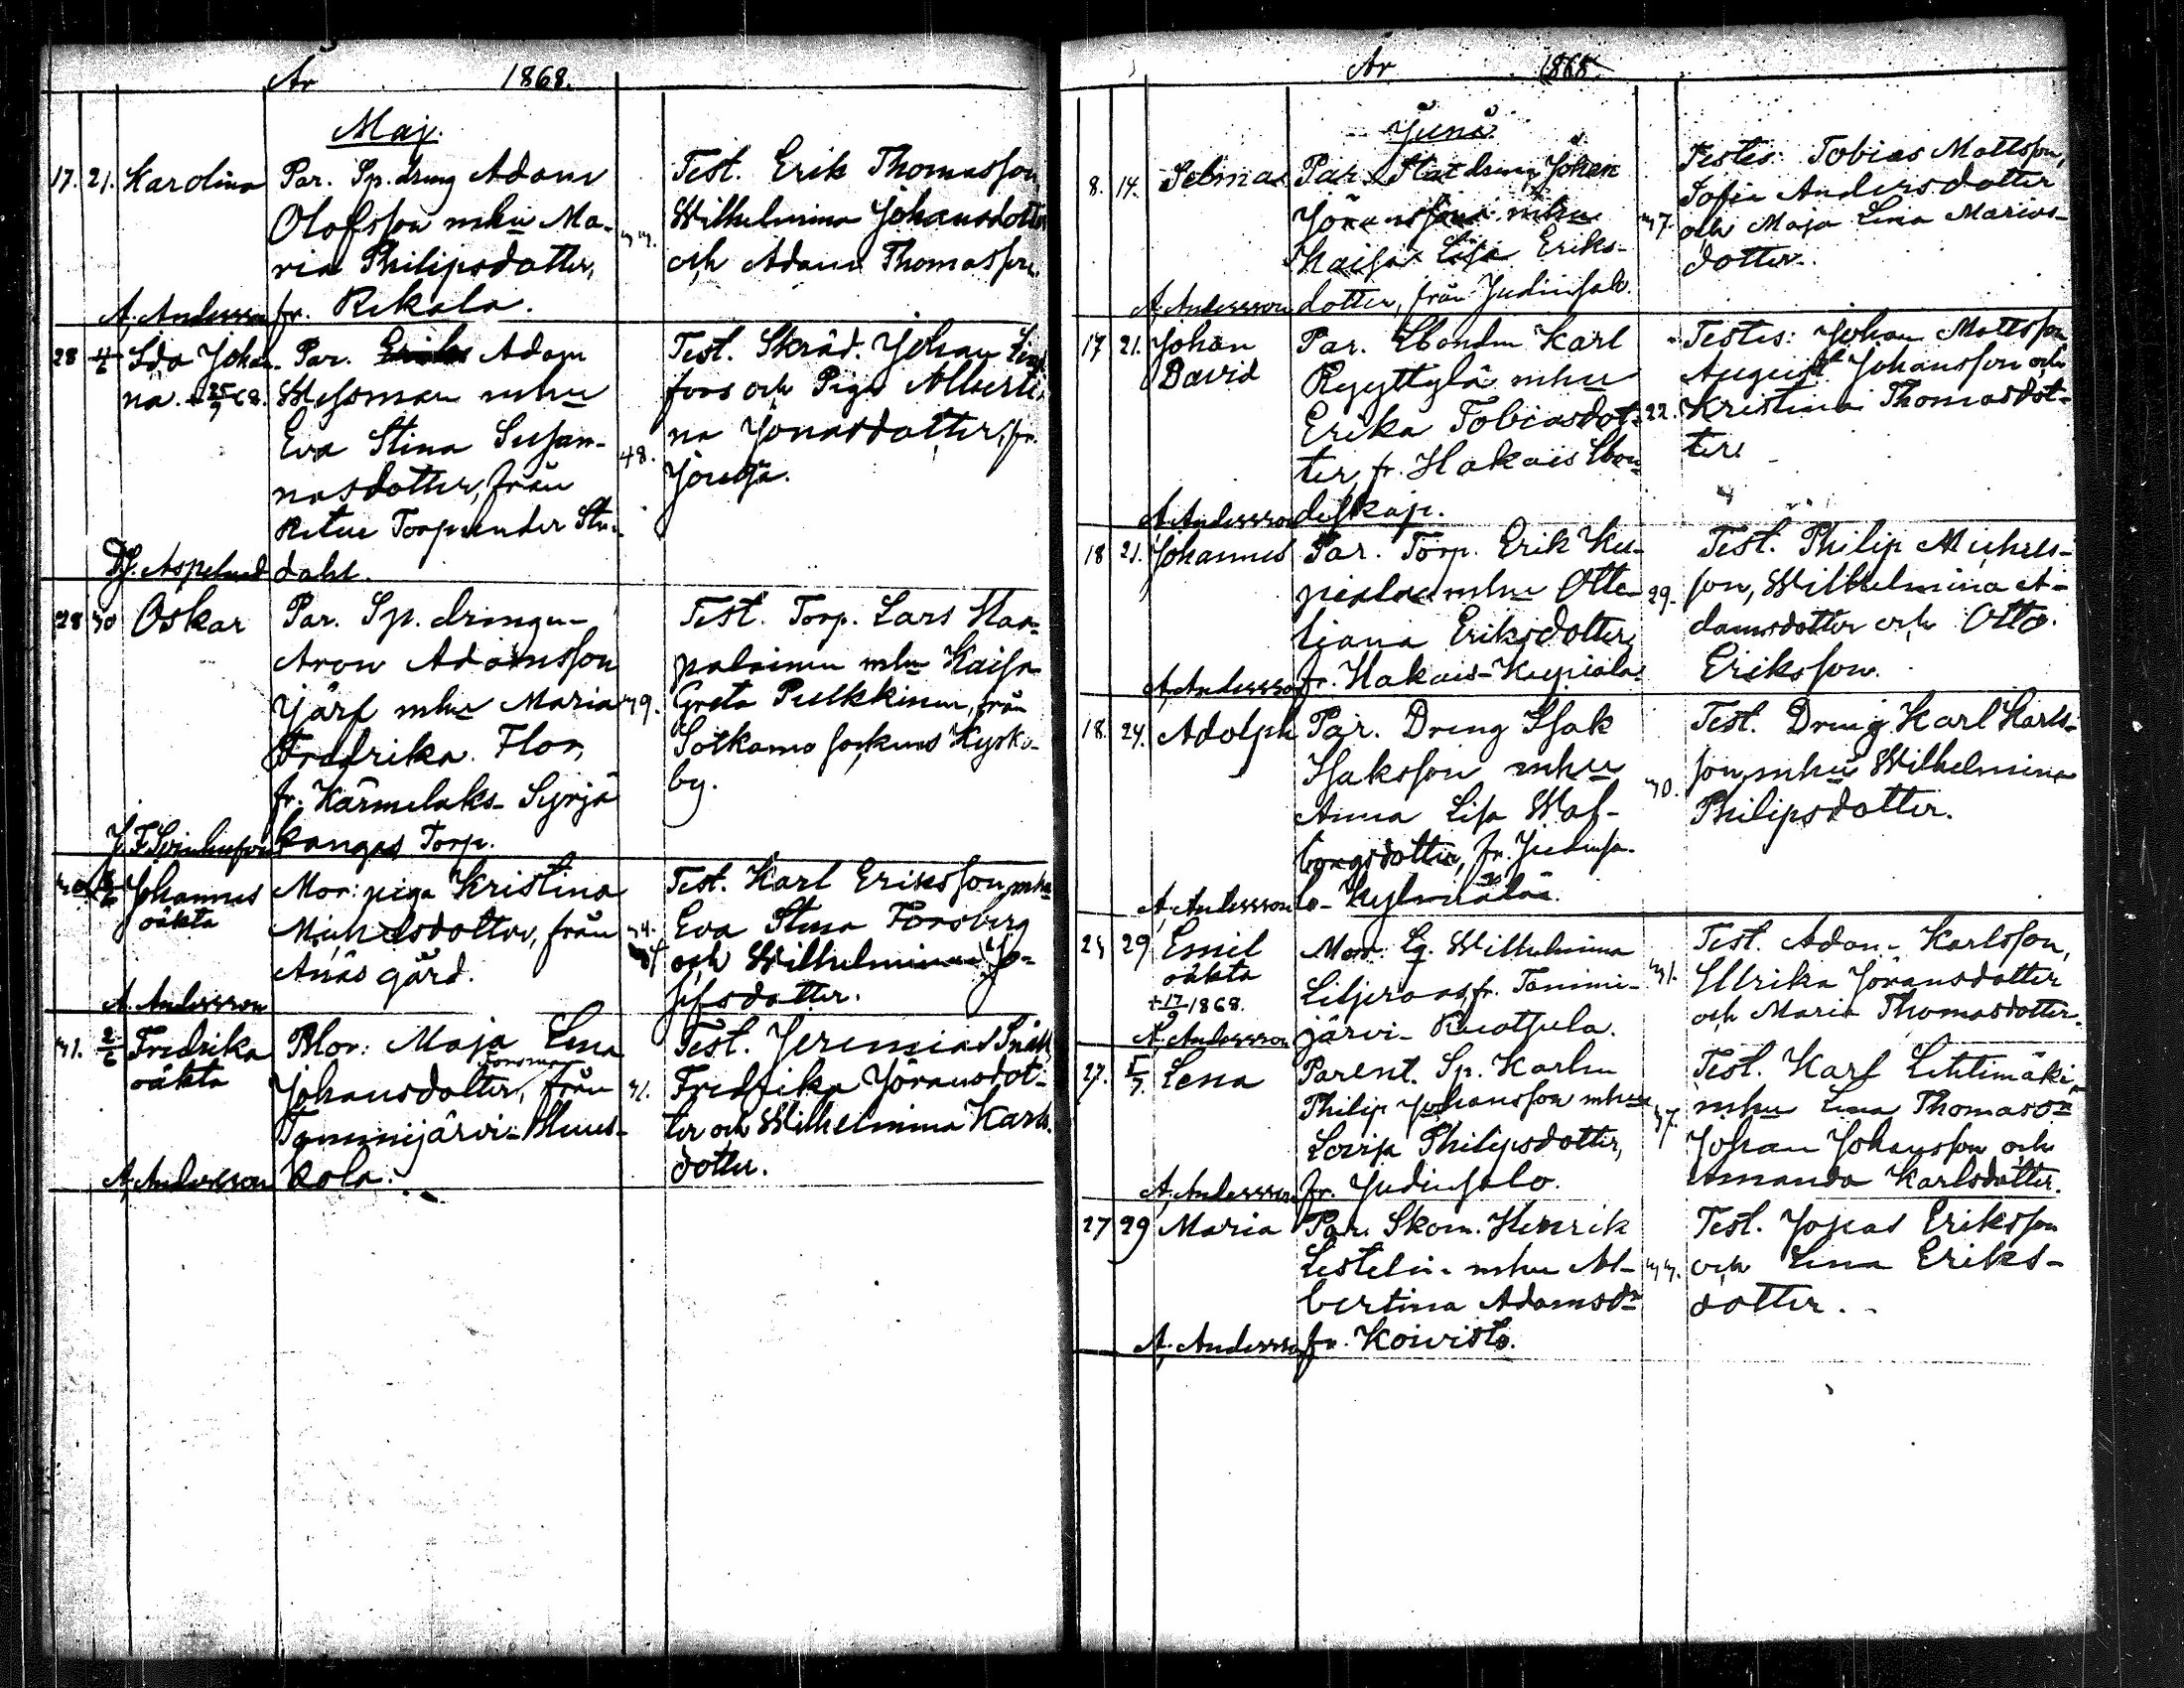 År 1868.
Maj.
17. 21. Karolina Par. Sp. dreng Adam
Olofsson mhu Ma-
ria Philipsdotter,
fr. Rekola.
A. Andersson
33. Test. Erik Thomasson,
Wilhelmina Johansdotter
och Adam Thomasson.
28 4/6 Ida Johan-
na. + 25/9 68.
Par. Adam
Wessman mhu
Eva Stina Susan-
nasdotter, från
Torp under Stu-
dahl.
Aspelund
48. Test. Skräd. Johan
fors och Piga Alberti-
na Jonasdotter, fr.
28 30 Oskar Par. Sp. drengen
Aron Adamsson
Järf mhu Maria
Fredrika Flor,
fr. Kärmelaks-Syrjä
kangas Torp.
39. Test. Torp. Lars
mhu Kaisa
Greta Pulkkinen, från
Sotkamo sockens
by.
Johannes
oäkta
Mor: piga Kristina
Michelsdotter, från
Anäs gård.
A. Andersson
34. Test. Karl Eriksson mhu
Eva Stina Forsberg
och Wilhelmina Jo-
sefsdotter.
31. 2/6 Fredrika
oäkta
Mor: Maja Lena
Forsman
Johansdotter, från
Tammijärvi-Huus-
kola.
A. Andersson
Test. Jeremias
Fredrika Göransdot-
ter och Wilhelmina Karls-
dotter.
År 1868.
Juni
8. 14. Selma Par. Statdreng Johan
Göransson mhu
Kaisa Lisa Eriks-
dotter, från Judinsalo.
A. Andersson
37. Testes: Tobias Mattsson,
Sofia Andersdotter
och Maja Lina Marias-
dotter.
17 21. Johan
David
Par. Lbonden Karl
Ryyttylä mhu
Erika Tobiasdot-
ter, fr. Hakais Lbon-
deskap.
A. Andersson
22. Testes: Johan Mattsson
August Johansson och
Kristina Thomasdot-
ter.
18 21. Johannes Par. Torp. Erik Ku-
piala mhu Otte-
liana Eriksdotter
fr. Hakais-Kupiala
A. Andersson
29. Test. Philip Michels-
son, Wilhelmina A-
damsdotter och Otto
Eriksson.
18. 24. Adolph Par. Dreng Isak
Isaksson mhu
Anna Lisa Wal-
borgsdotter, fr. Judinsa-
lo-Kylmälä.
A. Andersson
30. Test. Dreng Karl Karls-
son mhu Wilhelmina
Philipsdotter.
29 Emil
oäkta
+ 17/9 1868.
Mor: Wilhelmina
Liljeroos, fr. Tammi-
järvi-Ruotsula.
A. Andersson
31. Test. Adam Karlsson,
Ullrika Göransdotter
och Maria Thomasdotter.
27. 5/7. Lena Parent. Sp. Karlen
Philip Johansson mhu
Lovisa Philipsdotter,
fr. Judinsalo.
A. Andersson
37. Test. Karl Lehtimäki
mhu Lena Thomasdr
Johan Johansson och
Amanda Karlsdotter.
27 29 Maria Par. Skom. Henrik
Lestelin mhu Al-
bertina Adamsdr
fr. Koivisto.
A. Andersson
33. Test. Jonas Eriksson
och Lena Eriks-
dotter.